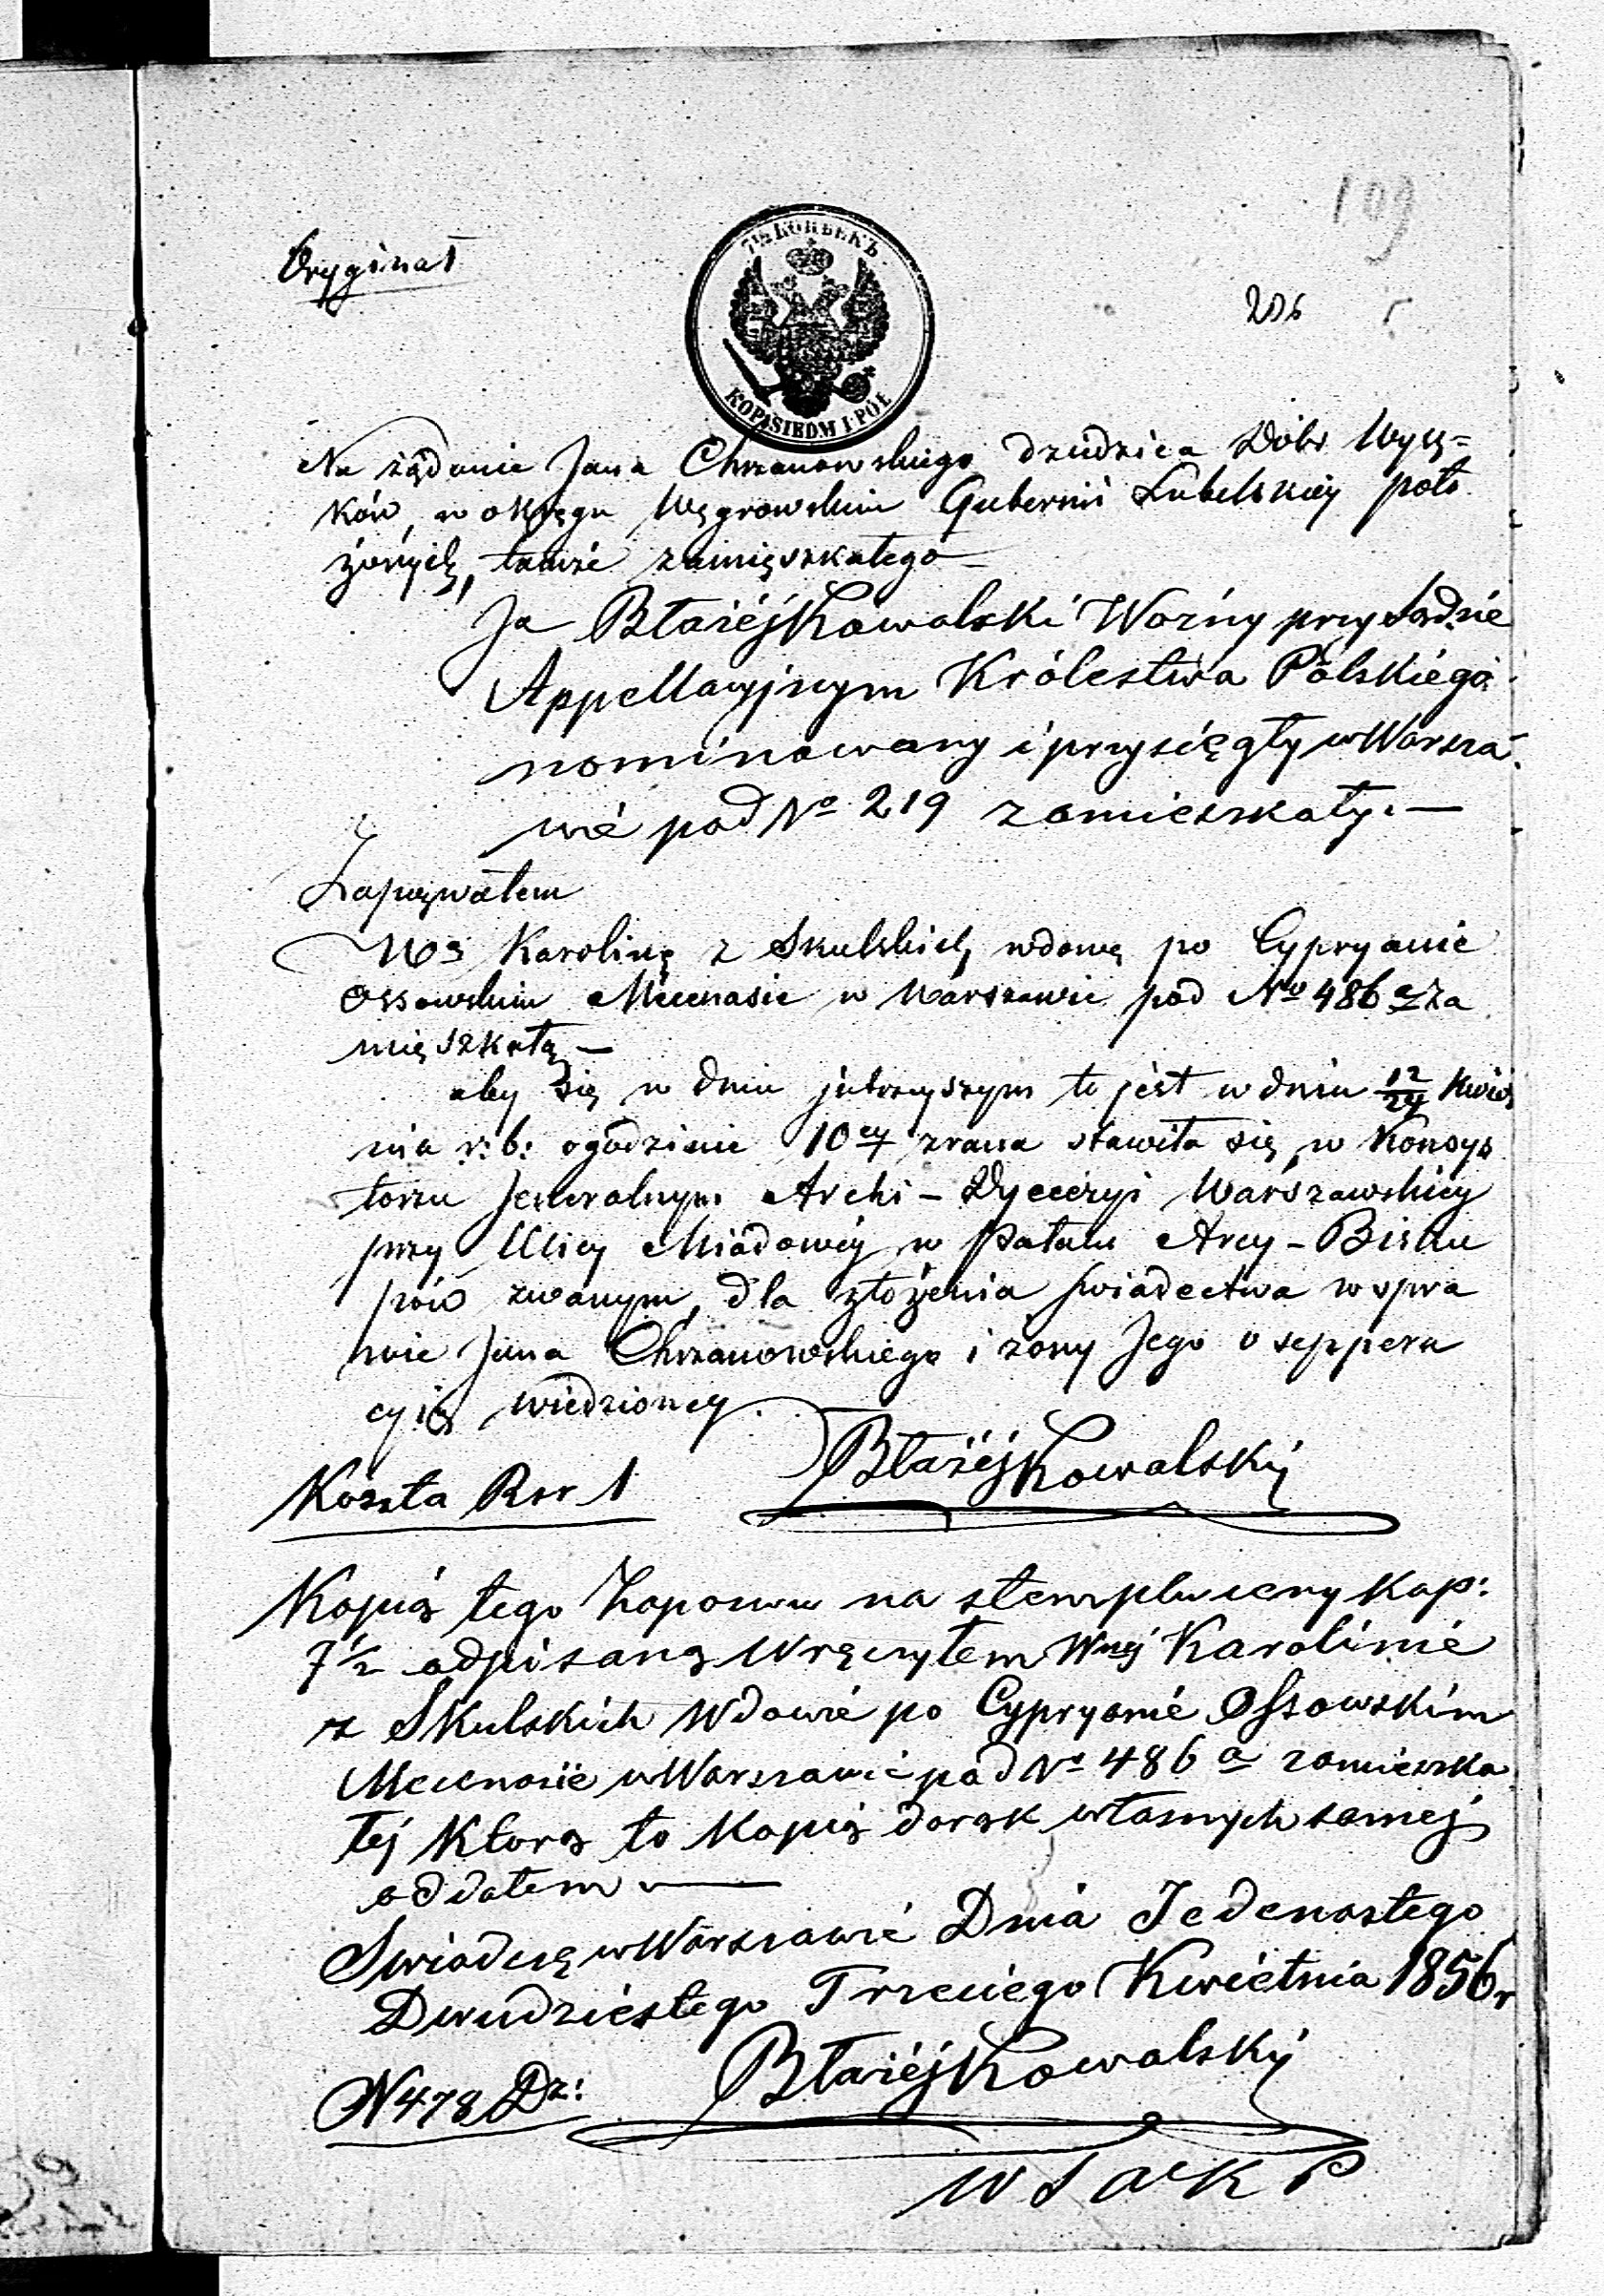 109
Oryginał
7½ КОПѢЕКЪ
KOP. SIEDM I PÓŁ
206
Na żądanie Jana Chrzanowskiego dziedzica Dóbr Wysz=
ków, w okręgu Węgrowskim Gubernii Lubelskiéj poło
żonych, tamże zamięszkałego —
Ja Błażéj Kowalski Woźny przy Sądzie
Appellacyjnym Królestwa Polskiégo
nominowany i przysięgły w Warsza
wié pod No 219 zamieszkały. —
Zapozwałem
Karolinę z Skulskich wdowę po Cypryanie
Ossowskim Mecenasie w Warszawie pod No 486 a za
mięszkałą —
aby się w dniu jutrzyszym to jest w dniu 12/24 Kwiet
nia r: b: o godzinie 10ey zrana stawiła się w Konsys
torzu Jeneralnym Archi-Dyecezyi Warszawskiéy
przy Ulicy Miodowéy w Pałacu Arcy-Bisku
pów zwanym, dla złożenia świadectwa w spra
wie Jana Chrzanowskiego i żony Jego o seppera
cyią wiedzionéy.
Błażéj Kowalski
Koszta Rsr 1
Kopią tego Zapozwu na stemplu ceny kop:
7½ odpisaną wręczyłem Wnéj Karolinié
z Skulskich Wdowié po Cypryanié Ossowskim
Mecenasié w Warszawié pod No 486 a zamieszka
łéj którą to Kopią do rąk własnych saméj
oddałem —
Swiadczę w Warszawié Dnia Jedenastego
Dwudziestego Trzeciego Kwiétnia 1856 r
Błażéj Kowalski
N 478 Dz:
W S A K P